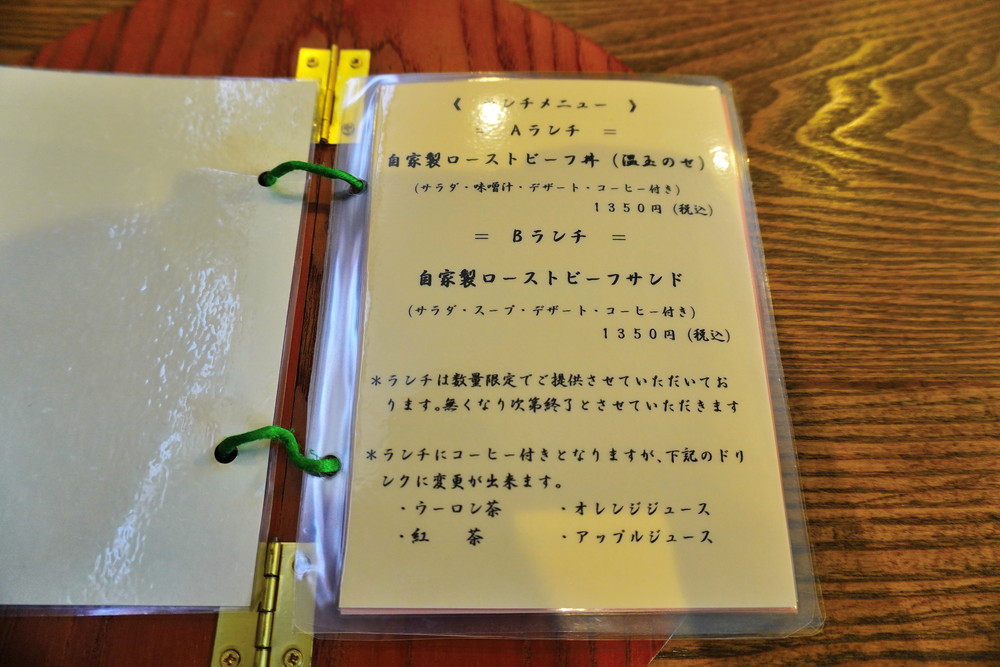 《 ランチメニュー 》
＝ Aランチ ＝
自家製ローストビーフ丼（温玉のせ）
（サラダ・味噌汁・デザート・コーヒー付き）
１３５０円（税込）
＝ Bランチ ＝
自家製ローストビーフサンド
（サラダ・スープ・デザート・コーヒー付き）
１３５０円（税込）
＊ランチは数量限定でご提供させていただいてお
ります。無くなり次第終了とさせていただきます
＊ランチにコーヒー付きとなりますが、下記のドリ
ンクに変更が出来ます。
・ウーロン茶　・オレンジジュース
・紅　茶　・アップルジュース